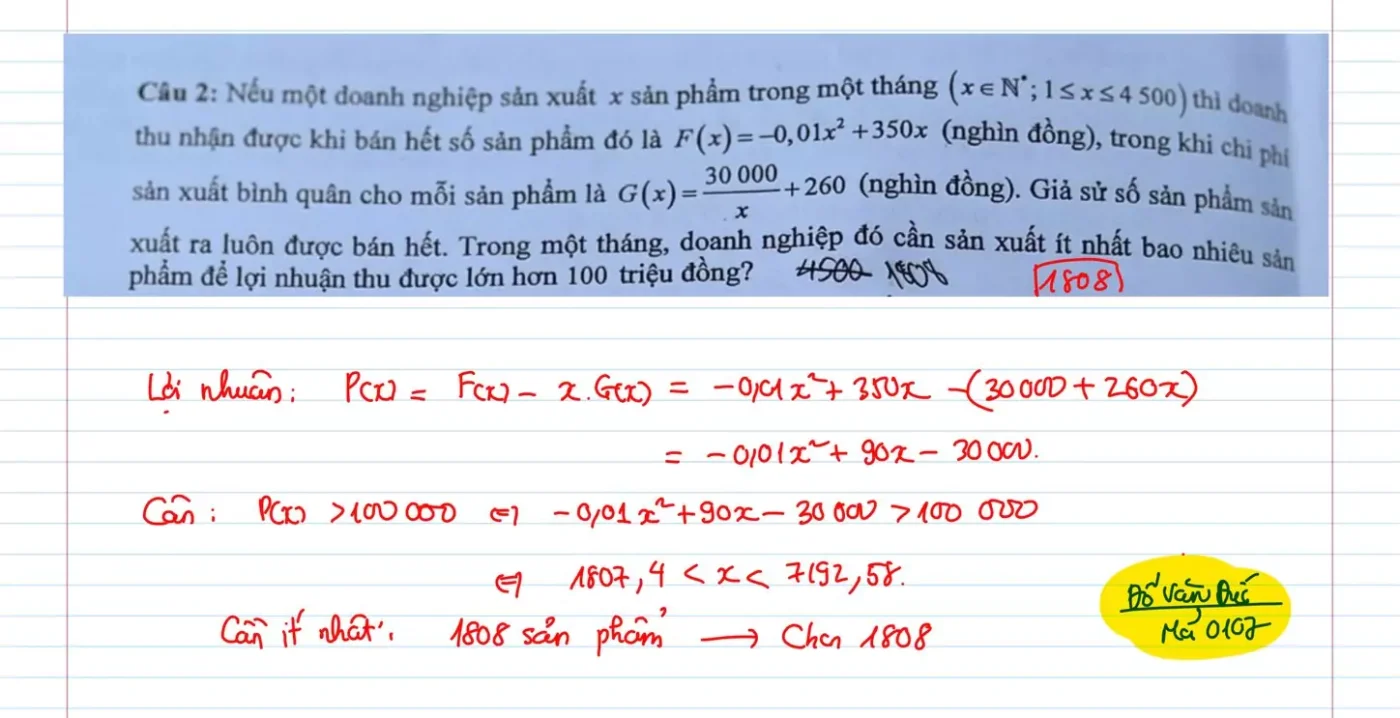 Câu 2: Nếu một doanh nghiệp sản xuất x sản phẩm trong một tháng (x ∈ N*; 1 ≤ x ≤ 4 500) thì doanh
thu nhận được khi bán hết số sản phẩm đó là F(x) = −0,01x² + 350x (nghìn đồng), trong khi chi phí
sản xuất bình quân cho mỗi sản phẩm là G(x) = 30 000/x + 260 (nghìn đồng). Giả sử số sản phẩm sản
xuất ra luôn được bán hết. Trong một tháng, doanh nghiệp đó cần sản xuất ít nhất bao nhiêu sản
phẩm để lợi nhuận thu được lớn hơn 100 triệu đồng? 4500 1808 1808
Lợi nhuận: P(x) = F(x) − x.G(x) = −0,01x² + 350x − (30 000 + 260x)
= −0,01x² + 90x − 30 000.
Cần: P(x) > 100 000 ⇔ −0,01x² + 90x − 30 000 > 100 000
⇔ 1807,4 < x < 7192,58.
Cần ít nhất: 1808 sản phẩm → Chọn 1808
Đỗ Văn Đức
Mả 0107